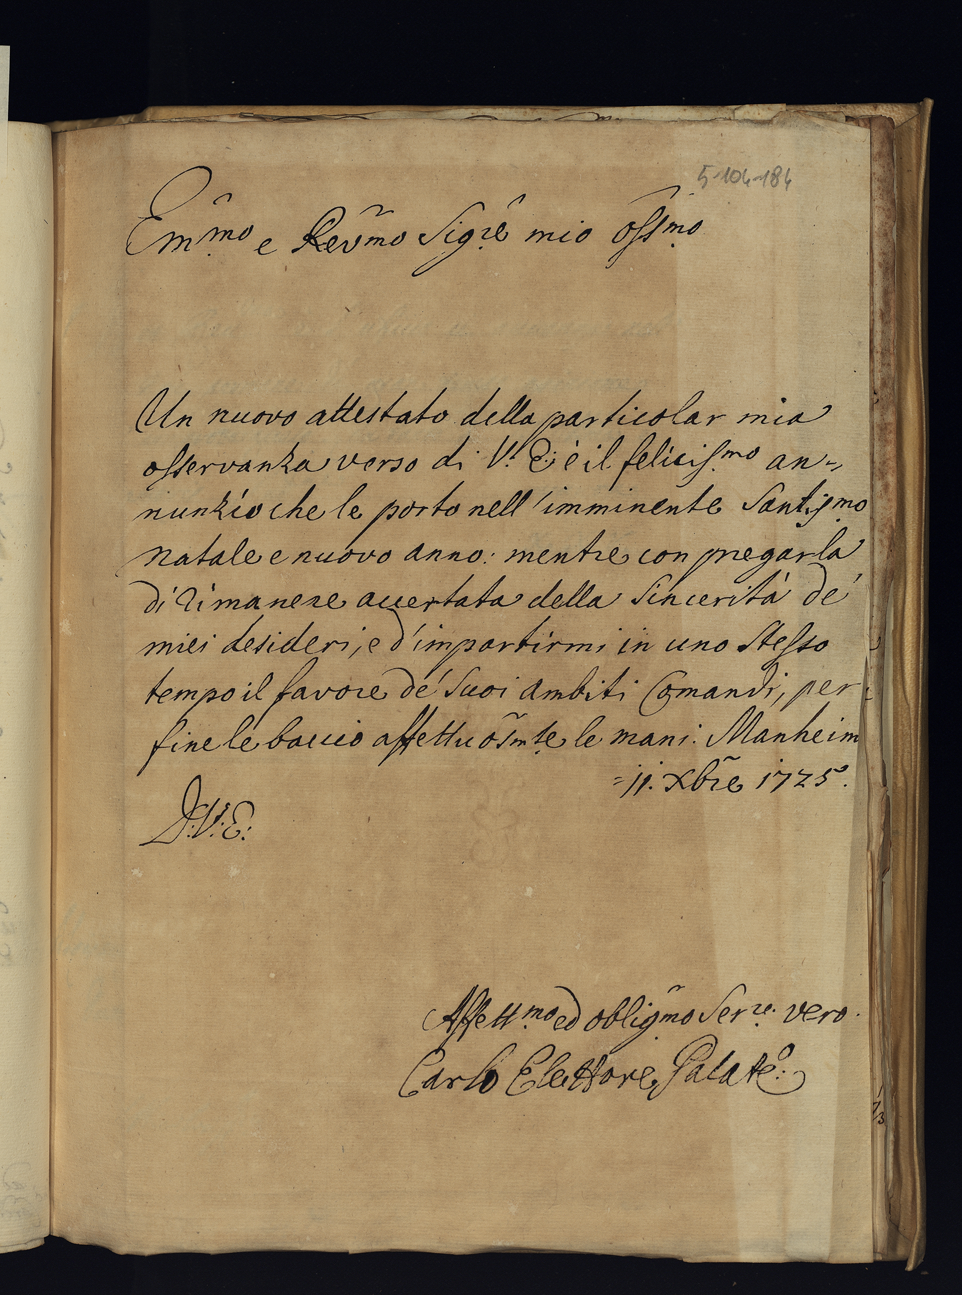 5-104-184
Em.mo e Reūmo Sig.re mio oss.mo
Un nuovo attestato della particolar mia
osservanza verso di V.a E: è il felicis.mo an=
nunzio che le porto nell'imminente Santis.mo
Natale e nuovo anno: mentre con pregarla
di rimanere accertata della Sincerità de'
miei desideri, e d'impartirmi in uno stesso
tempo il favore de' Suoi ambiti Comandi, per
fine le baccio affettuosm.te le mani. Manheim
=11. Xbre 1725.
D: V: E:
Affett.mo ed obligmo Ser.re vero.
Carlo Elettore Palat.o: